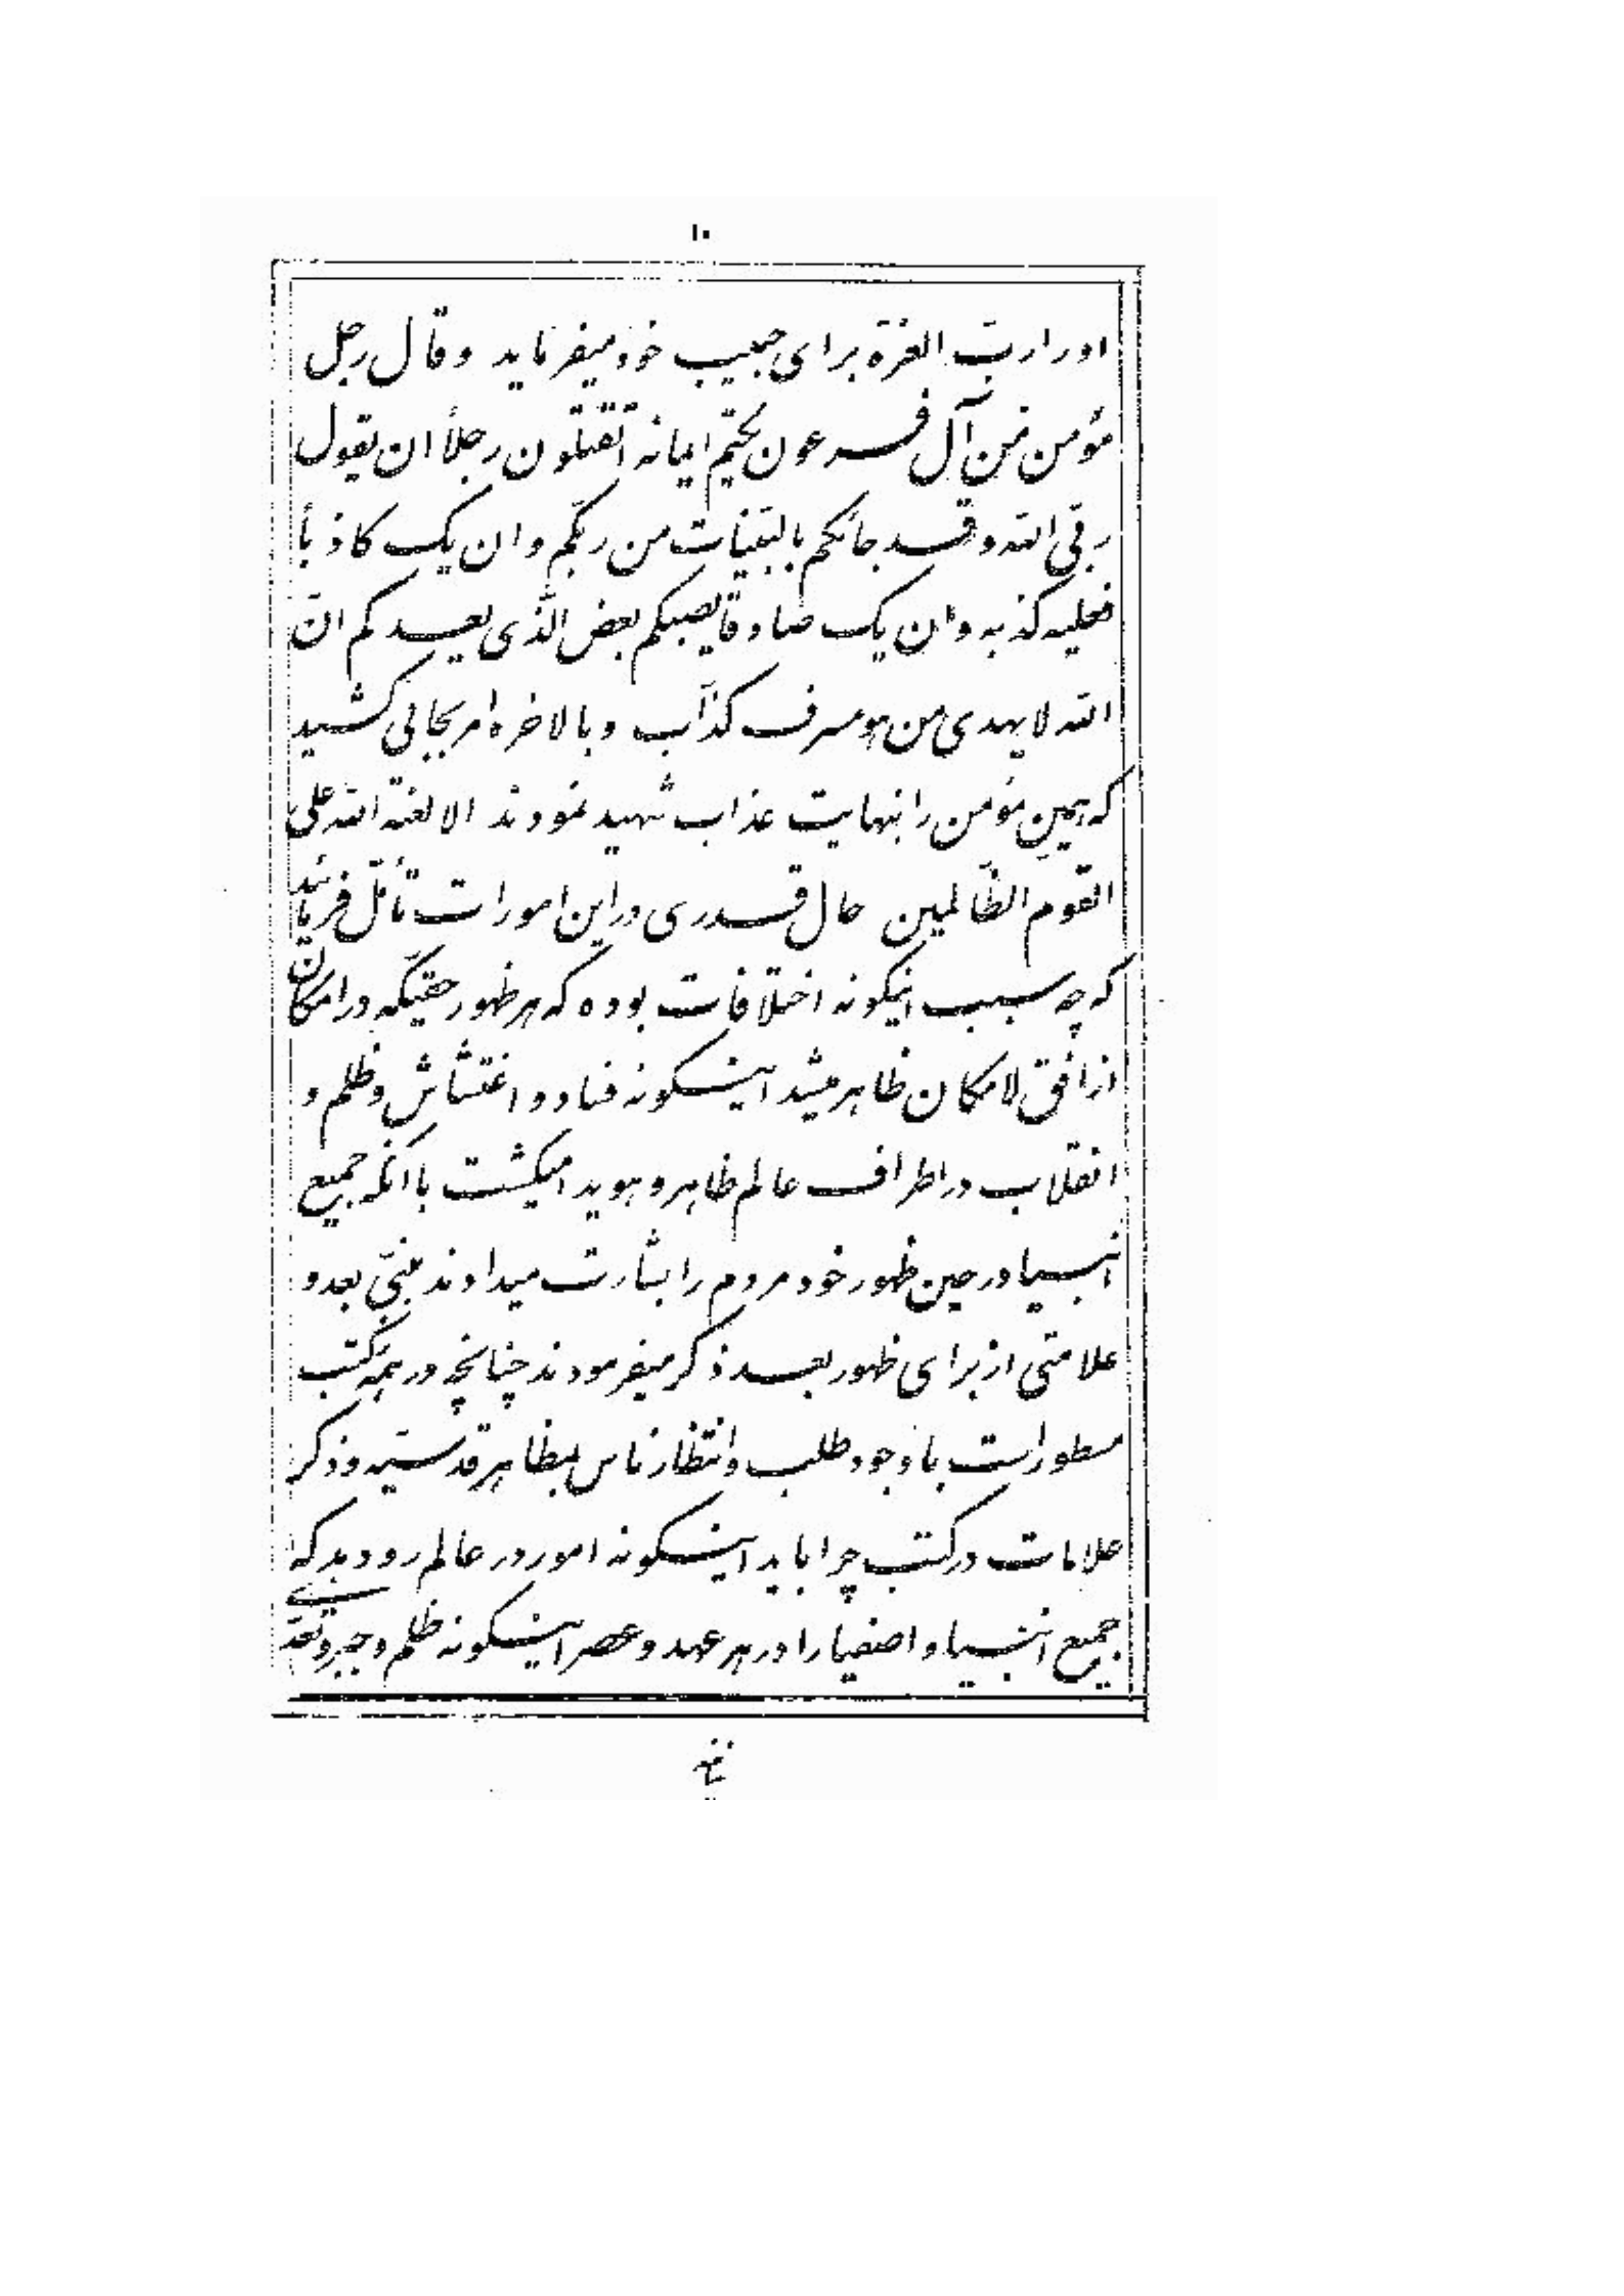 ۱۰
او را ربّ العزّة برای حبیب خود میفرماید و قال رجل
مؤمن من آل فرعون یکتم ایمانه أ تقتلون رجلاً ان یقول
ربّی الله و قد جائکم بالبیّنات من ربّکم و ان یک کاذباً
فعلیه کذبه و ان یک صادقاً یصبکم بعض الّذی یعدکم انّ
الله لا یهدی من هو مسرف کذّاب و بالاخره امر بجائی کشید
که همین مؤمن را بنهایت عذاب شهید نمودند الا لعنة الله علی
القوم الظّالمین حال قدری در این امورات تأمّل فرمائید
که چه سبب اینگونه اختلافات بوده که هر ظهور حقّیکه در امکان
از افق لامکان ظاهر میشد اینگونه فساد و اغتشاش و ظلم و
انقلاب در اطراف عالم ظاهر و هویدا میگشت با آنکه جمیع
انبیا در حین ظهور خود مردم را بشارت میدادند بنبیّ بعد و
علامتی از برای ظهور بعد ذکر میفرمودند چنانچه در همهٔ کتب
مسطور است با وجود طلب و انتظار ناس بمظاهر قدسیّه و ذکر
علامات در کتب چرا باید اینگونه امور در عالم رو دهد که
جمیع انبیا و اصفیا را در هر عهد و عصر اینگونه ظلم و جبر و تعدّی
نمایند